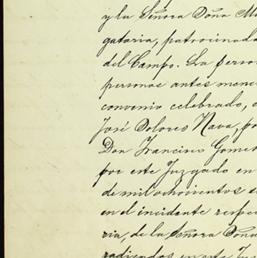 y la Señora Doña M
gataria, patrocinada
del Campo. La perso
personas antes menc
convenio celebrado,
José Dolores Nava, po
Don Francisco Gome
por este Juzgado en
de mil ochocientos
en el incidente respec
ria, de la Señora Doña
radicados en este Ju